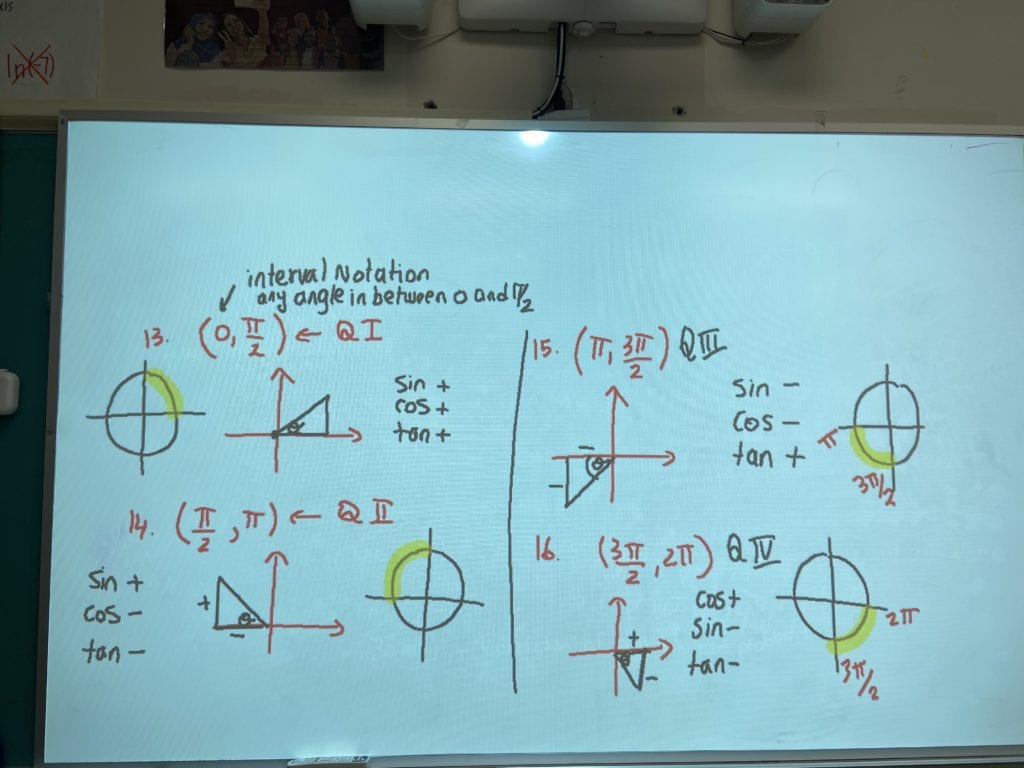 xis
ln(-7)
interval Notation
any angle in between 0 and π/2
13. (0, π/2) ← Q I
sin +
cos +
tan +
θ
14. (π/2, π) ← Q II
sin +
cos -
tan -
+
θ
-
15. (π, 3π/2) Q III
sin -
cos -
tan +
-
θ
-
π
3π/2
16. (3π/2, 2π) Q IV
cos +
sin -
tan -
+
θ
-
2π
3π/2